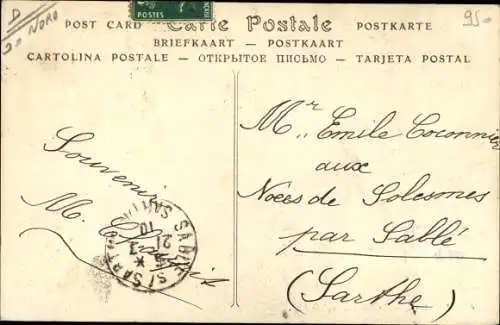 D
NORD
95
POST CARD — Carte Postale — POSTKARTE
BRIEFKAART — POSTKAART
CARTOLINA POSTALE — ОТКРЫТОЕ ПИСЬМО — TARJETA POSTAL
POSTES
Souvenir
M.
Mr. Emile Coconnier
aux
Noces de Solesmes
par Sablé
(Sarthe)
SABLÉ S/ SARTHE
SARTHE
10
21